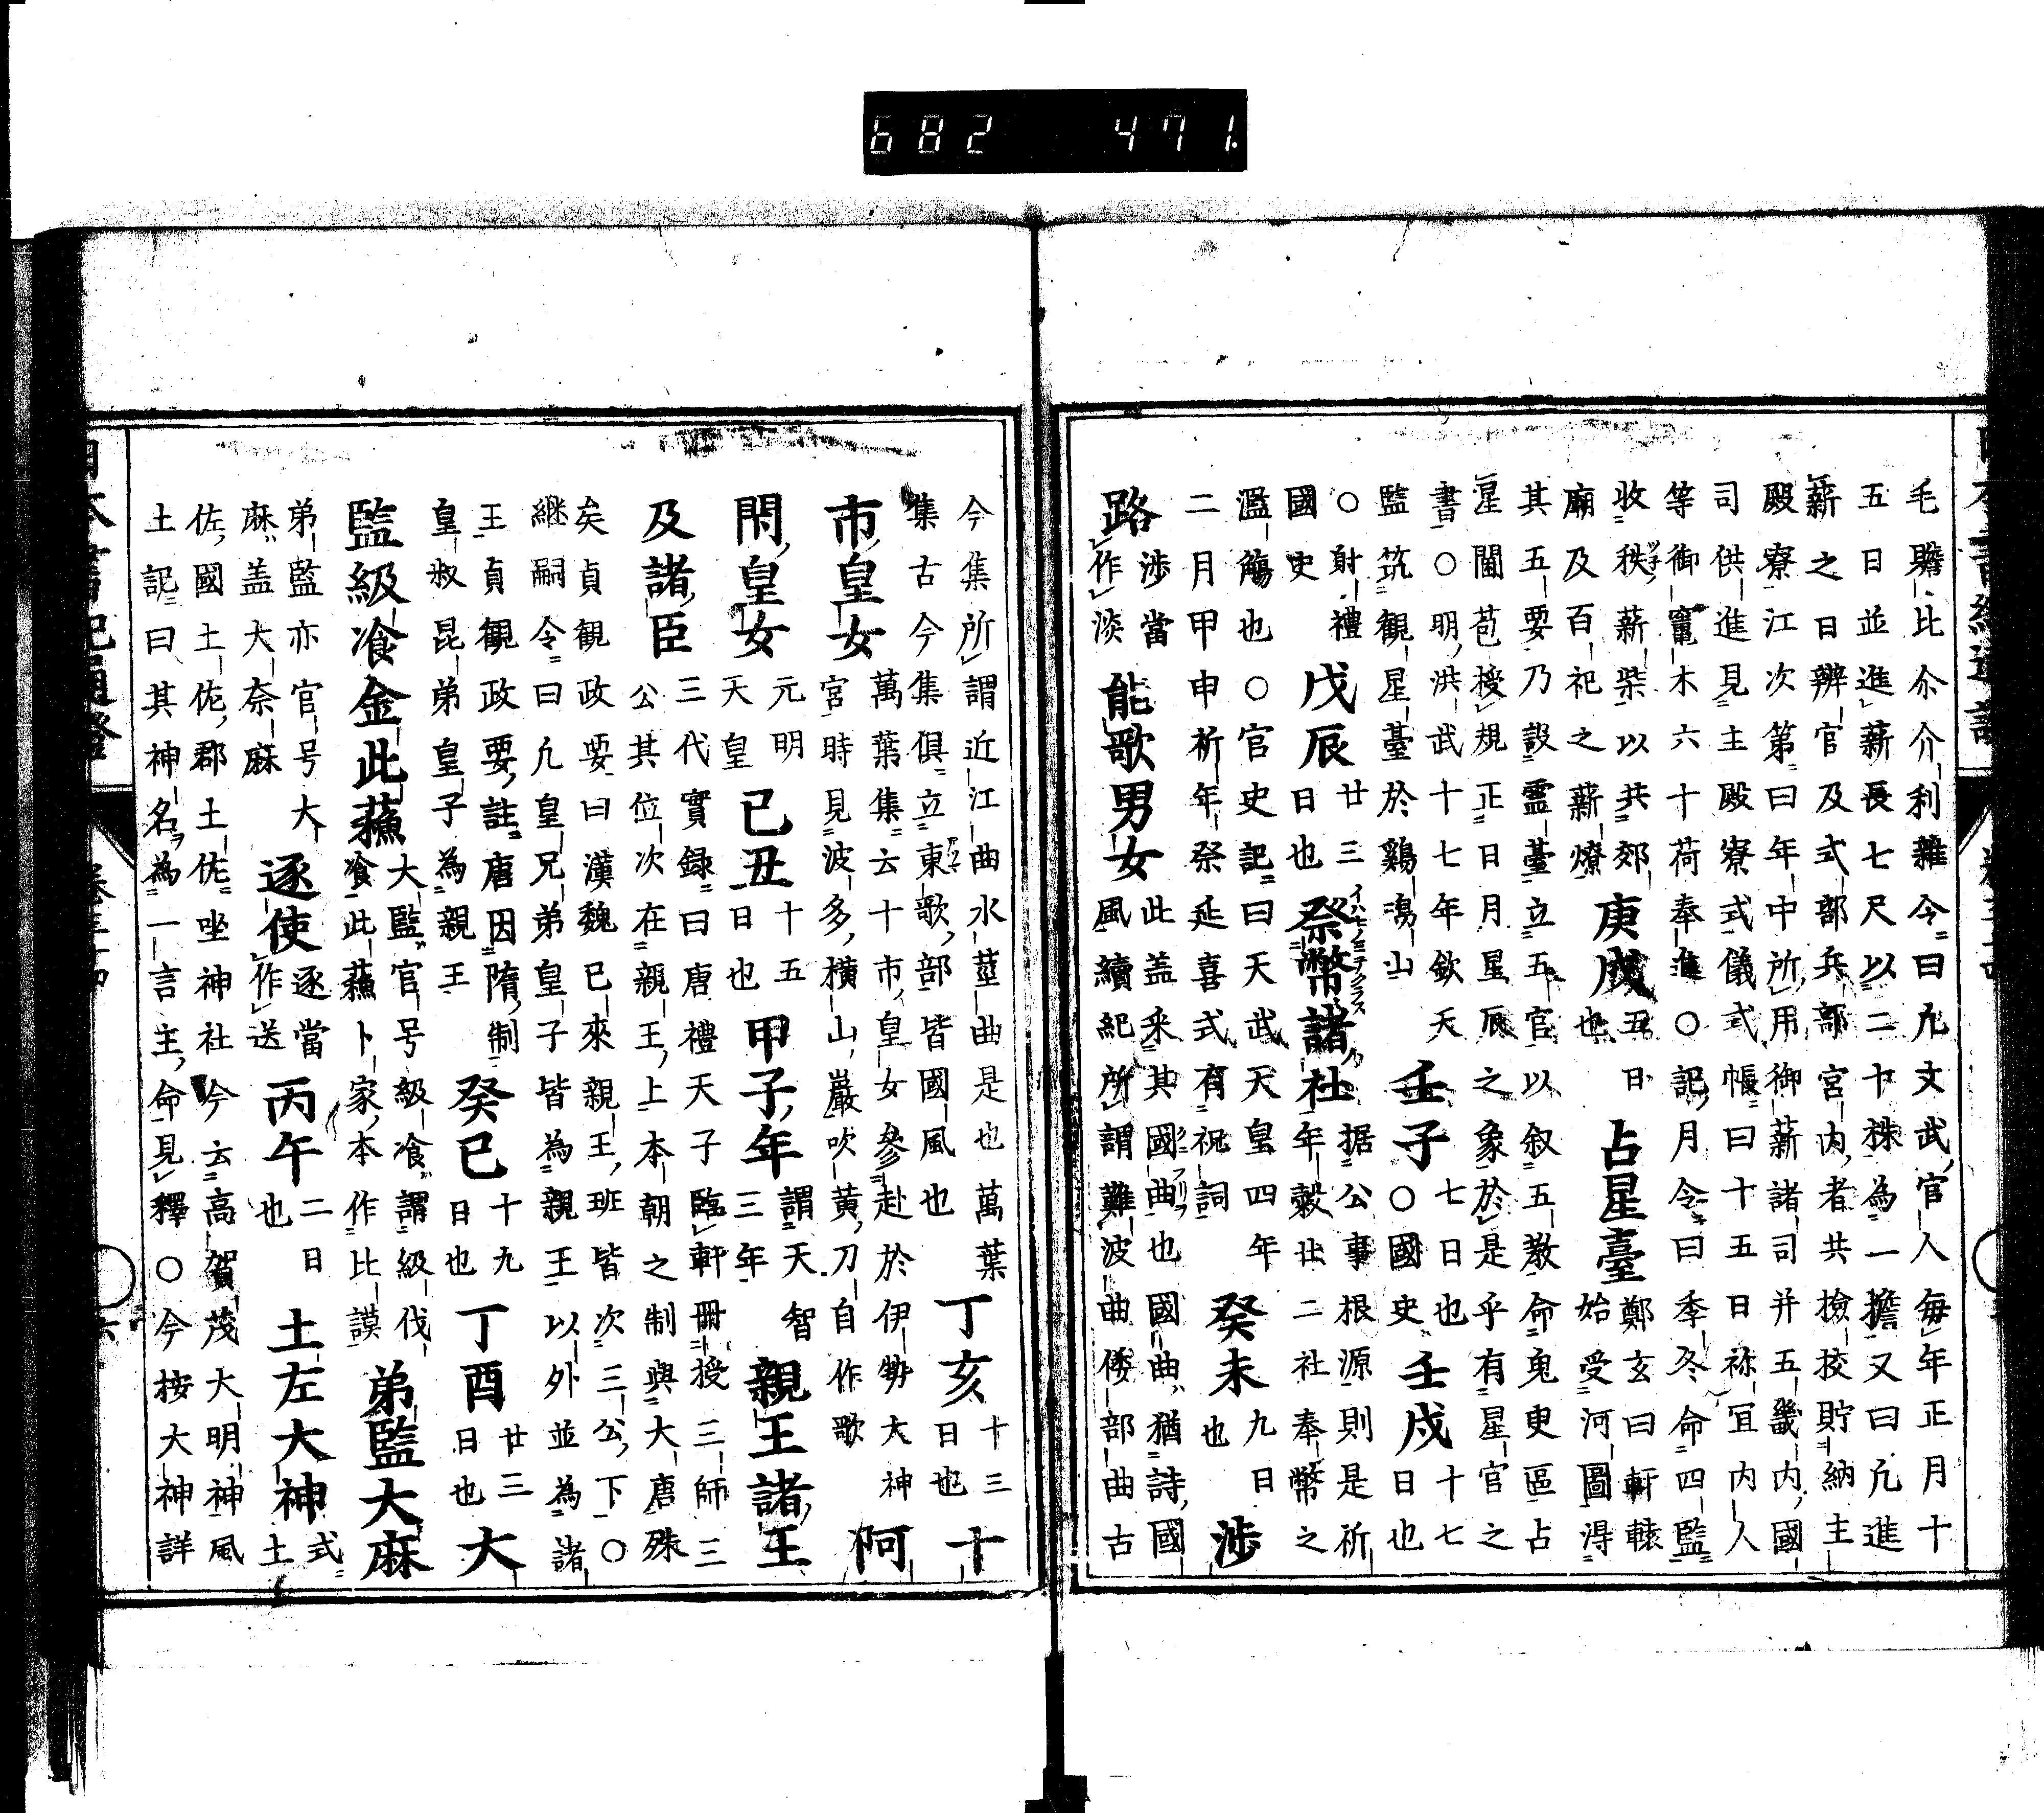 682 471.
毛贈比尒介利雜令曰凡文武官人每年正月十
五日並進薪長七尺以二十株為一擔又曰凡進
薪之日辨官及式部兵部宮内者共撿挍貯納主
殿寮江次第曰年中所用御薪諸司并五畿内國
司供進見主殿寮式儀式帳曰十五日祢冝内人
等御竈木六十荷奉進○記月令曰季冬命四監
收秩薪柴以共郊
廟及百祀之薪燎
庚戌
五日
也
占星臺
鄭玄曰軒轅
始受河圖淂
其五要乃設靈臺立五官以叙五教命臾區占
星閫苞授規正日月星辰之象於是乎有星官之
書○明洪武十七年欽天
監筑觀星臺於鷄鳴山
壬子
七日也
○國史
壬戌
十七
日也
○射禮
國史
戊辰
廿三
日也
祭幣諸社
据公事根源則是祈
年穀廿二社奉幣之
濫觴也○官史記曰天武天皇四年
二月甲申祈年祭延喜式有祝詞
癸未
九日
也
涉
路
涉當
作淡
能歌男女
此盖采其國曲也國曲猶詩國
風續紀所謂難波曲倭部曲古
今集所謂近江曲水莖曲是也萬葉
集古今集俱立東歌部皆國風也
丁亥
十三
日也
十
市皇女
萬葉集云十市皇女參赴於伊勢大神
宮時見波多橫山巖吹黄刀自作歌
阿
閇皇女
元明
天皇
己丑
十五
日也
甲子年
謂天智
三年
親王諸王
及諸臣
三代實録曰唐禮天子臨軒冊授三師三
公其位次在親王上本朝之制與大唐殊
矣貞觀政要曰漢魏已來親王班皆次三公下○
継嗣令曰凡皇兄弟皇子皆為親王以外並為諸
王貞觀政要註唐因隋制
皇叔昆弟皇子為親王
癸巳
十九
日也
丁酉
廿三
日也
大
監級飡金此蘓
大監官号級飡謂級伐
飡此蘓卜家本作比謨
弟監大麻
弟監亦官号大
麻盖大奈麻
逐使
逐當
作送
丙午
二日
也
土左大神
式
土
佐國土佐郡土佐坐神社今云高賀茂大明神風
土記曰其神名為一言主命見釋○今按大神詳